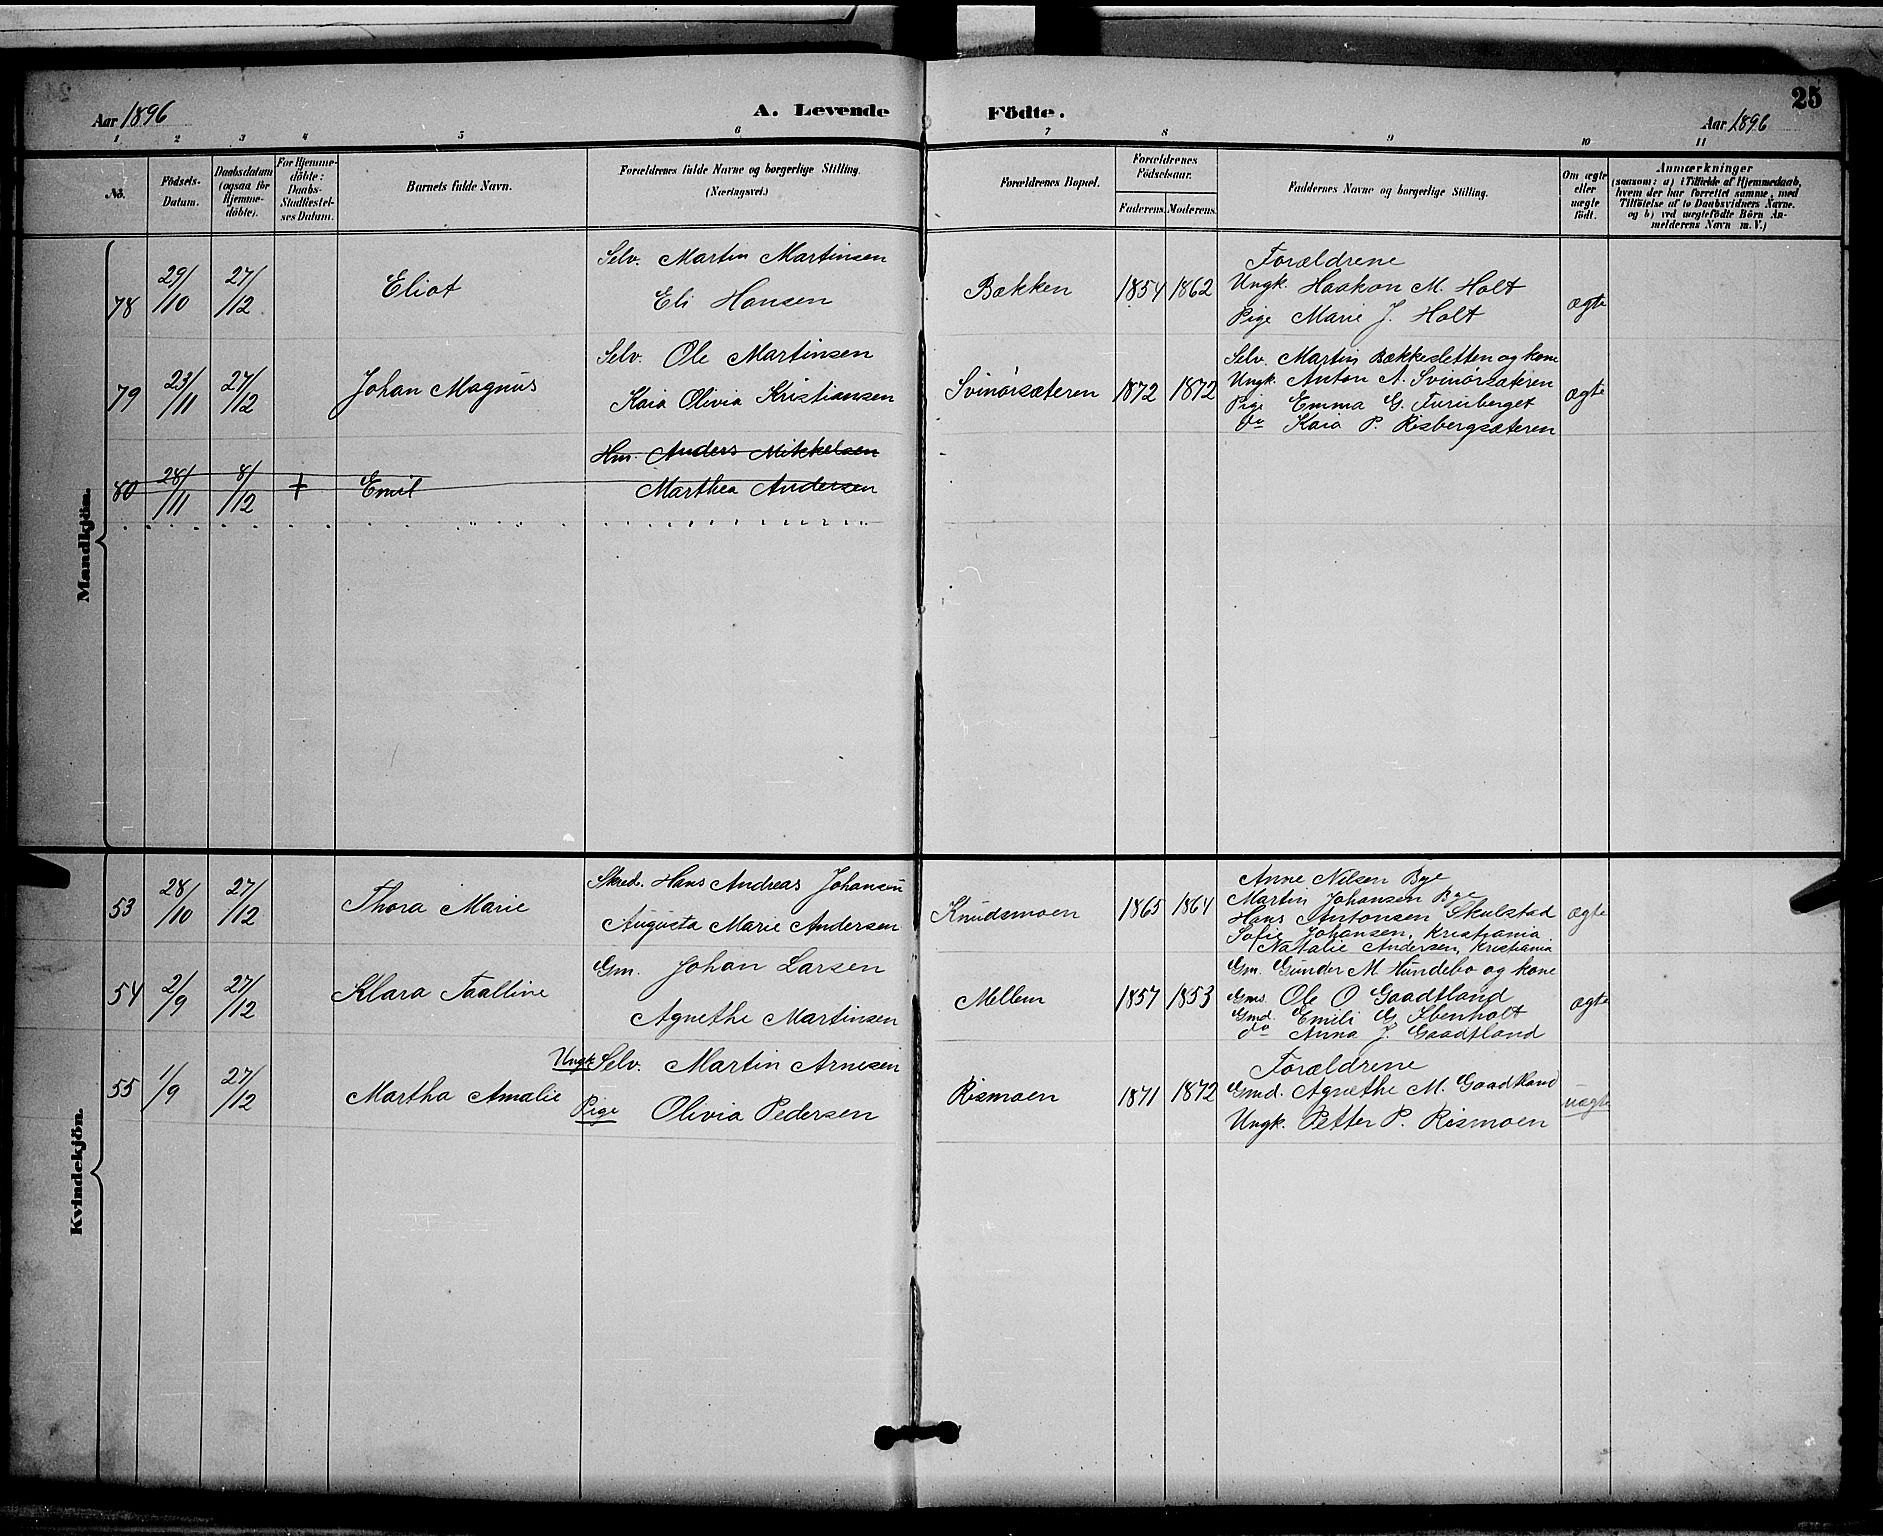 25
Aar 1896
A. Levende Födte.
Aar 1896
1 2 3 4 5 6 7 8 9 10 11
No.
Födsels-Datum.
Daabsdatum (ogsaa for Hjemme-döbte).
For Hjemme-döbte: Daabs-Stadfæstel-ses Datum.
Barnets fulde Navn.
Forældrenes fulde Navne og borgerlige Stilling. (Næringsvei.)
Forældrenes Bopæl.
Forældrenes Födselsaar.
Faderens. Moderens.
Faddernes Navne og borgerlige Stilling.
Om ægte eller uægte født.
Anmærkninger
(saasom: a) i Tilfælde af Hjemmedaab,
hvem der har forrettet samme, med
Tilföielse af to Daabsvidners Navne.
og b) ved uægtefödte Börn An-
melderens Navn m.V.)
Mandkjön.
78 29/10 27/12 Eliot
Selv. Martin Martinsen
Eli Hansen
Bakken 1854 1862
Forældrene
Ungk. Haakon M. Holt
Pige Marie J. Holt
ægte
79 23/11 27/12 Johan Magnus
Selv. Ole Martinsen
Kaia Olivia Kristiansen
Svinörsæteren 1872 1872
Selv. Martin Bækkesletten og kone
Ungk. Anton A. Svinörsæteren
Pige Emma G. Furuberget
do Kaia P. Risbergsæteren
ægte
80 28/11 8/12 + Emil
Hm. Anders Mikkelsen
Marthea Andersen
Kvindekjön.
53 28/10 27/12 Thora Marie
Skred. Hans Andreas Johansen
Augusta Marie Andersen
Knudsmoen 1865 1864
Anne Nilsen Bye
Martin Johansen Bye
Hans Antonsen Skulstad
Sofie Johansen, Kristiania
Natalie Andersen, Kristiania
ægte
54 2/9 27/12 Klara Taalline
Gm. Johan Larsen
Agnethe Martinsen
Mellem 1857 1853
Gm. Gunder M Hundebo og kone
Gms. Ole O Gaadtland
Gmd. Emili G. Ibenholt
do Anna J. Gaadtland
ægte
55 1/9 27/12 Martha Amalie
Ungk. Selv. Martin Arnesen
Pige Olivia Pedersen
Rismoen 1871 1872
Forældrene
Gmd. Agnethe M. Gaadtland
Ungk. Petter P. Rismoen
uægte